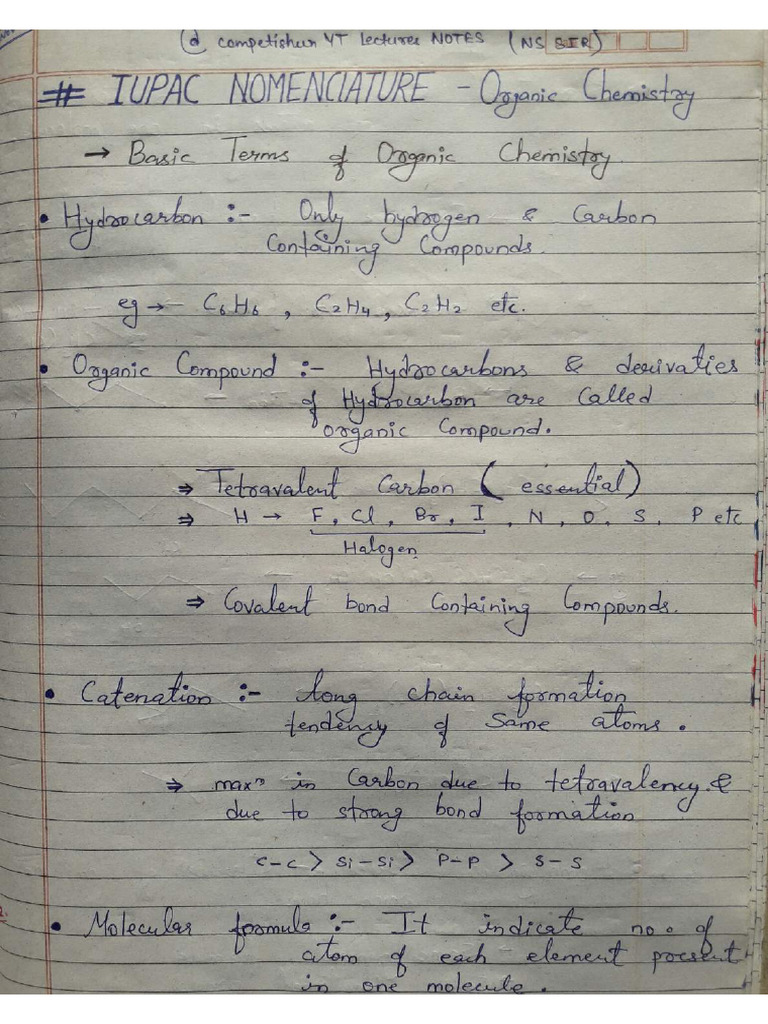 @ competishun YT Lectures NOTES (NS SIR)
# IUPAC NOMENCLATURE - Organic Chemistry
→ Basic Terms of Organic Chemistry
• Hydrocarbon :- Only hydrogen & Carbon
Containing Compounds.
eg → - C₆H₆ , C₂H₄ , C₂H₂ etc.
• Organic Compound :- Hydrocarbons & derivaties
of Hydrocarbon are Called
organic Compound.
⇒ Tetravalent Carbon ( essential)
⇒ H → F, Cl, Br, I , N, O, S, P etc
Halogen
⇒ Covalent bond Containing Compounds.
• Catenation :- long chain formation
tendency of Same atoms .
⇒ maxⁿ in Carbon due to tetravalency &
due to strong bond formation
C-C > Si-Si > P-P > S-S
• Molecular formula :- It indicate no. of
atom of each element present
in one molecule .